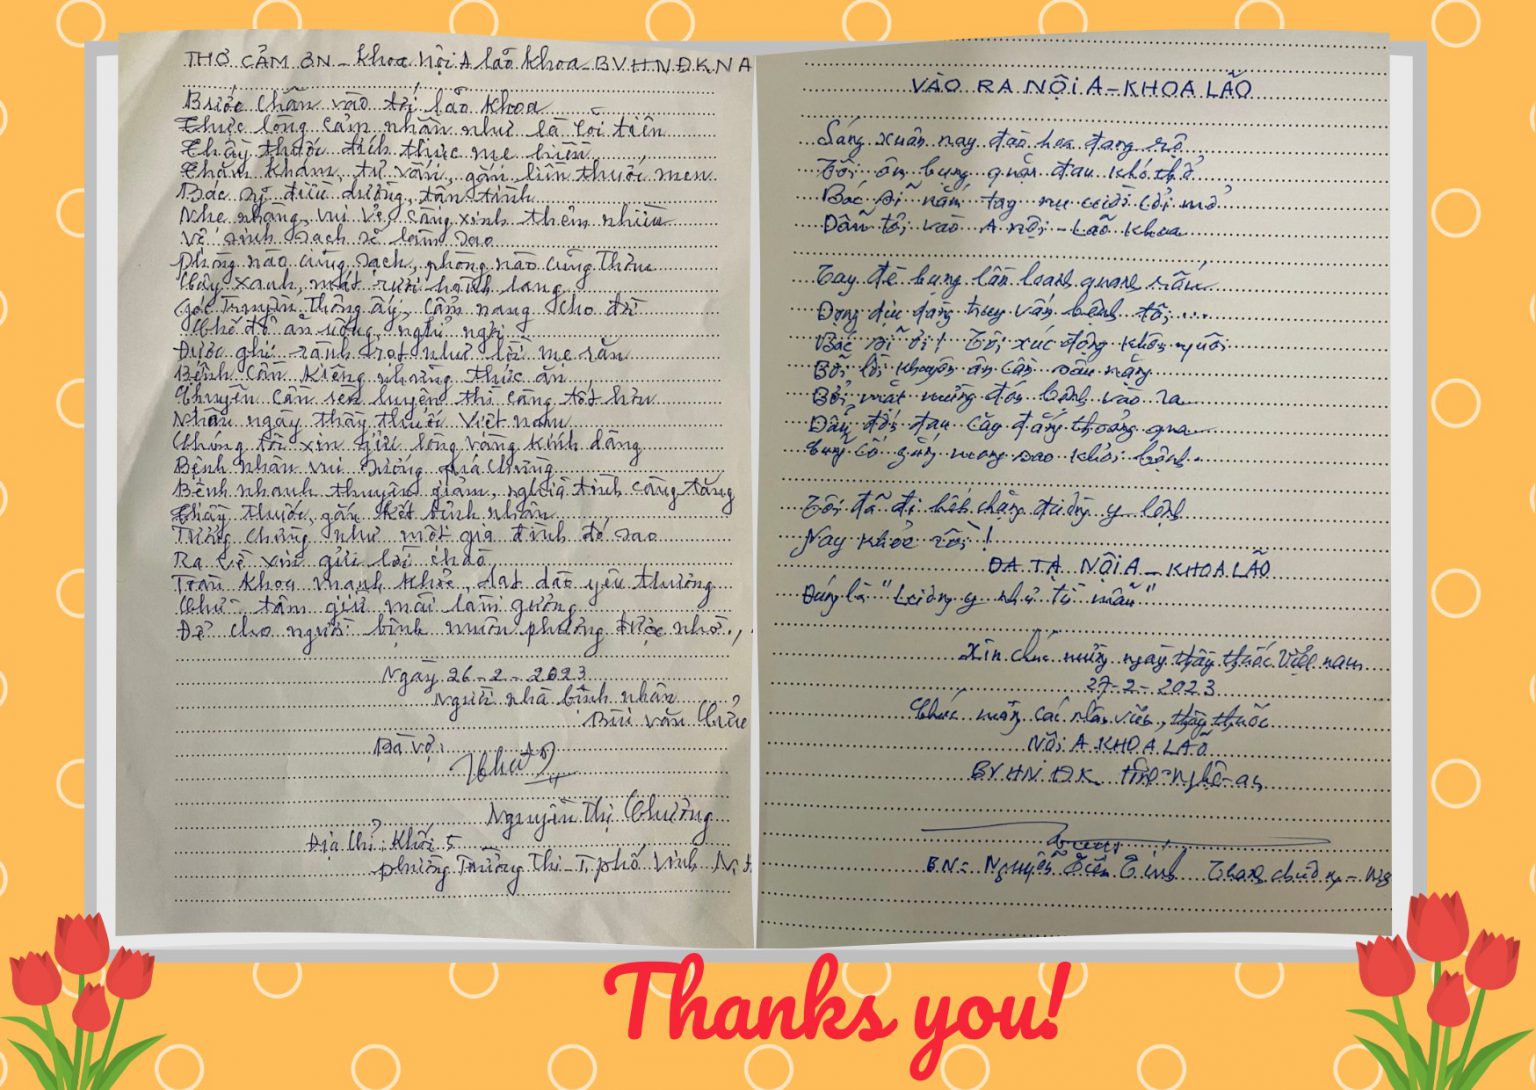 THƠ CẢM ƠN - Khoa Nội A lão khoa - BVHNĐKNA
Bước chân vào tới lão khoa
Thực lòng cảm nhận như là cõi tiên
Thầy thuốc đích thực mẹ hiền
Thăm khám, tư vấn, gắn liền thuốc men
Bác sỹ điều dưỡng, tận tình
Nhẹ nhàng vui vẻ càng xinh thêm nhiều
Vệ sinh sạch sẽ làm sao
Phòng nào cũng sạch, phòng nào cũng thơm
Cây xanh, mát rượi hành lang
Góc truyền thông ấy, cẩm nang cho đời
Chế độ ăn uống, nghỉ ngơi
Được ghi rành rọt như lời mẹ răn
Bệnh cần kiêng những thức ăn
Thuyên cần rèn luyện thì càng tốt hơn
Nhân ngày thầy thuốc Việt nam
Chúng tôi xin gửi lòng vàng kính dâng
Bệnh nhân vui sướng quá chừng
Bệnh nhanh thuyên giảm, nghĩa tình càng tăng
Thầy thuốc, gắn kết bệnh nhân
Tưởng chừng như một gia đình đó sao
Ra về xin gửi lời chào
Toàn khoa mạnh khỏe, dạt dào yêu thương
Chữ tâm giữ mãi làm gương
Để cho người bệnh muôn phương được nhờ.,
Ngày 26-2-2023
Người nhà bệnh nhân
Bùi văn
Và vợ:
Nguyễn Thị Chương
Địa chỉ: Khối 5
phường Trường Thi - T.phố Vinh N.
VÀO RA NỘI A - KHOA LÃO
Sáng xuân nay đào hoa đang rộ
Tôi ôm bụng quặn đau khó thở
Bác sĩ nắm tay nụ cười cởi mở
Dẫn tôi vào A nội - Lão khoa
Tay đè bụng lần loanh quanh rốn
Đọng đực đang truy vấn bệnh tôi...
Bác sĩ ơi! Tôi xúc động khôn nguôi
Bởi lời khuyên ân cần sâu nặng
Bởi mát mường đón bệnh vào ra
Dẫu đớn đau cay đắng thoảng qua
Cũng cố gắng mong sao khỏi bệnh.
Tôi đã đi hết chặng đường y lệnh
Nay khỏe rồi!
ĐA TẠ NỘI A - KHOA LÃO
Đúng là "Lương y như từ mẫu"
Xin chúc mừng ngày thầy thuốc Việt nam
27-2-2023
Chúc mừng các nhân viên, thầy thuốc
NỘI A KHOA LÃO
BVHN ĐK Nghệ-an
BN: Nguyễn Tiến Thanh chương - N
Thanks you!